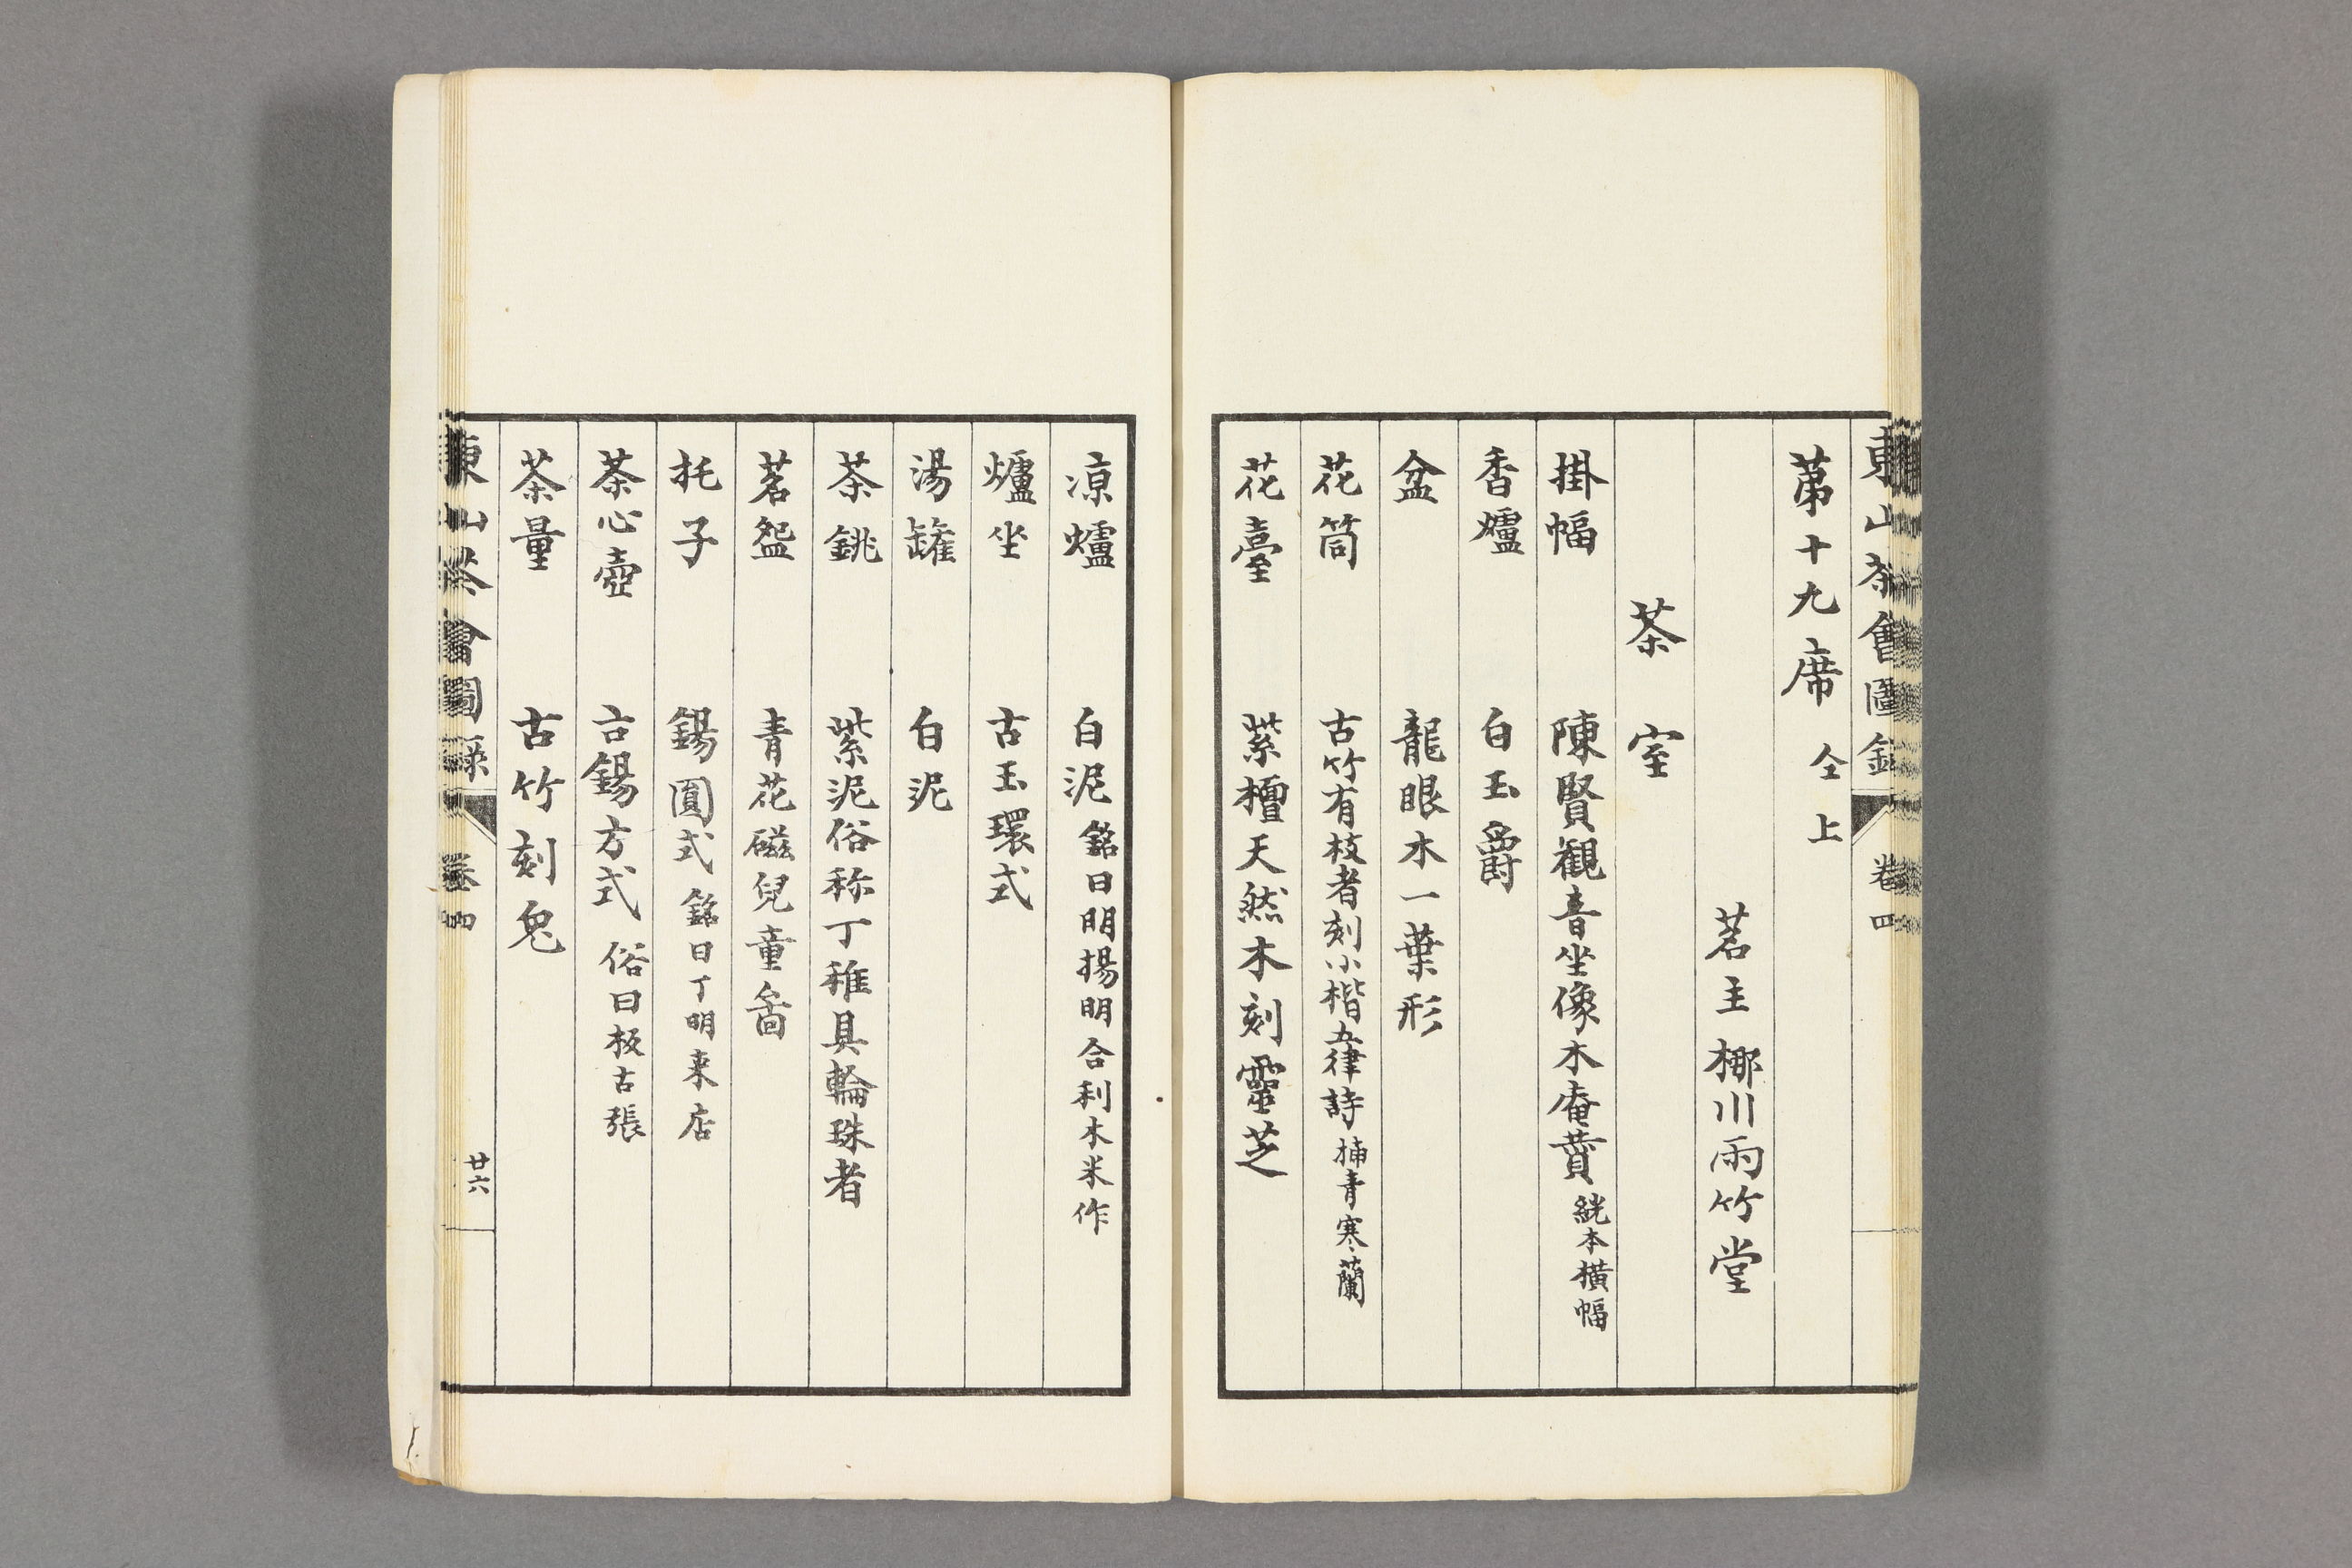 東山茶會圖錄 卷四
第十九席 仝上
茗主 梛川雨竹堂
茶室
掛幅 陳賢觀音坐像木庵賛 絖本橫幅
香爐 白玉爵
盆 龍眼木一葉形
花筒 古竹有枝者刻小楷五律詩 插青寒蘭
花臺 紫檀天然木刻靈芝
凉爐 白泥 銘曰明揚明合利木米作
爐坐 古玉環式
湯罐 白泥
茶銚 紫泥俗称丁稚具輪珠者
茗盌 青花磁兒童畫
托子 錫圓式 銘曰丁明来店
茶心壺 古錫方式 俗曰板古張
茶量 古竹刻皃
東山茶會圖錄 卷四 廿六